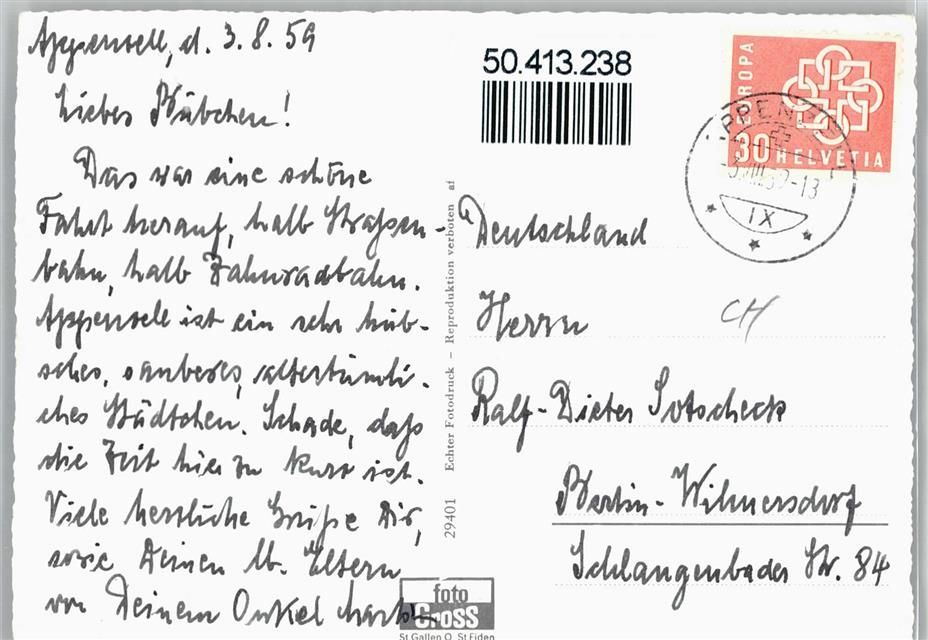 Appenzell, d. 3.8.59
Liebes Bübchen!
Das war eine schöne
Fahrt herauf, halb Strassen-
bahn, halb Zahnradbahn.
Appenzell ist ein sehr hüb-
sches, sauberes, altertümli-
ches Städtchen. Schade, daß
die Zeit hier zu kurz ist.
Viele herzliche Grüße Dir,
sowie Deinen lb. Eltern
von Deinem Onkel
29401 Echter Fotodruck – Reproduktion verboten af
foto
Gross
St Gallen O. St Fiden
50.413.238
EUROPA
30 HELVETIA
APPENZELL
-3.VIII.59-13
IX
Deutschland
Herrn
CH
Ralf-Dieter Sotscheck
Berlin-Wilmersdorf
Schlangenbader Str. 84